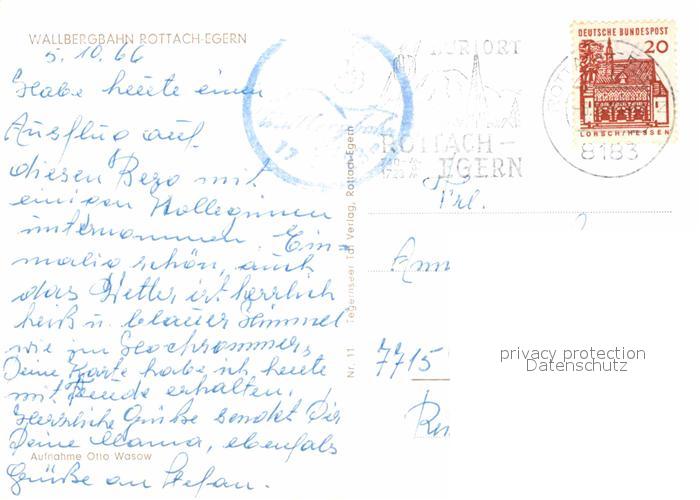 WALLBERGBAHN ROTTACH-EGERN
5.10.66
Habe heute einen
Ausflug auf
diesen Berg mit
einigen Kolleginnen
unternommen. Ein=
malig schön, auch
das Wetter ist herrlich
heiß u. blauer Himmel
wie im Hochsommer.
Deine Karte habe ich heute
mit Freude erhalten.
Herzliche Grüße sendet Dir
Deine Mama, ebenfalls
Grüße an Stefan.
Aufnahme Otto Wasow
Nr. 11 Tegernseer Tal Verlag, Rottach-Egern
KURORT
ROTTACH-
EGERN
DEUTSCHE BUNDESPOST
20
LORSCH/HESSEN
8183
Frl.
7715
privacy protection
Datenschutz